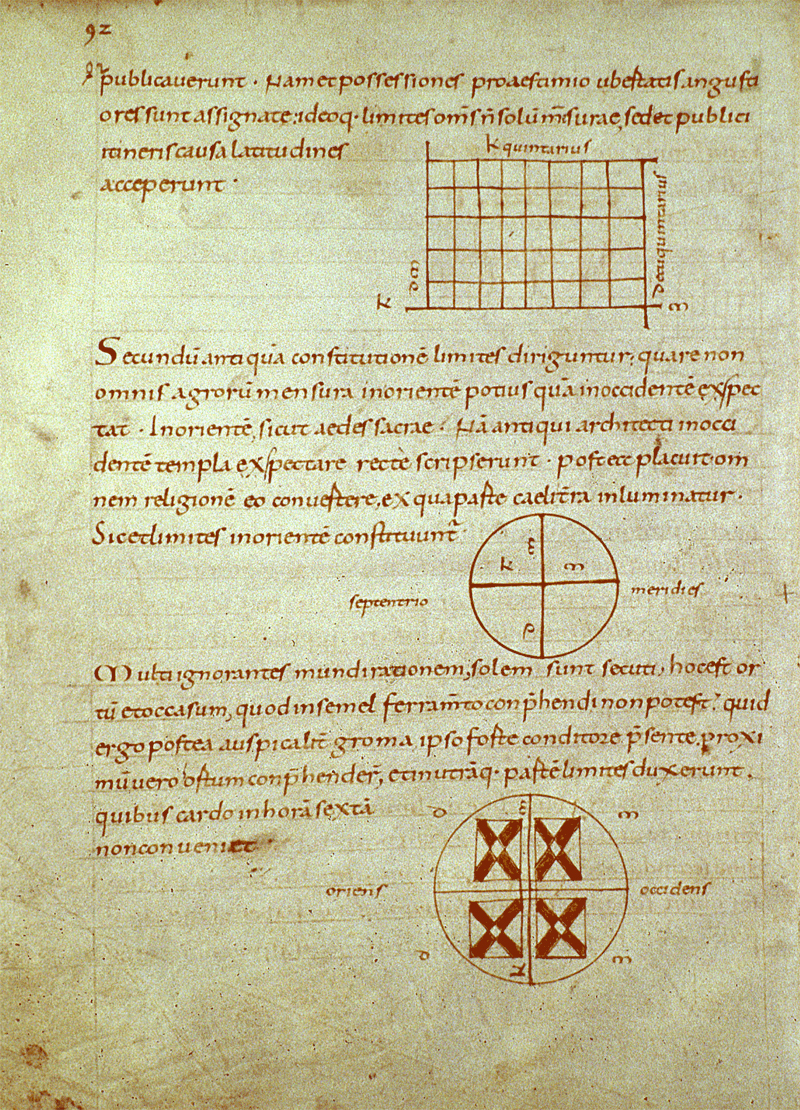 92
publicaverunt · Nam et possessiones pro aestimio ubertatis angusti
ores sunt assignate; ideoq· limites om̄s n̄ solū m̄surae, sed et publici
itineris causa latitudines
acceperunt ·
k quintarius
k
m
Secundū antiquā constitutionē limites diriguntur; quare non
omnis agrorū mensura in orientē potius quā in occidentē exspec
tat · In orientē, sicut aedes sacrae · Nā antiqui architecti in occi
dentē templa exspectare recte scripserunt · postea placuit om
nem religionē eo convertere, ex qua parte caeli t̄ra inluminatur ·
Sic et limites in orientē constituunt̄
k
m
septentrio
meridies
p
Multi ignorantes mundi rationem, solem sunt secuti, hoc est or
tū et occasum, quod in semel ferram̄to conp̄hendi non potest. quid
ergo postea auspicalit̄ groma, ipso forte conditore p̄sente. proxi
mū vero ortum conp̄hender̄, et in utrāq· partē limites duxerunt.
quibus cardo in horā sextā
non conveniet ·
D
m
oriens
occidens
D
m